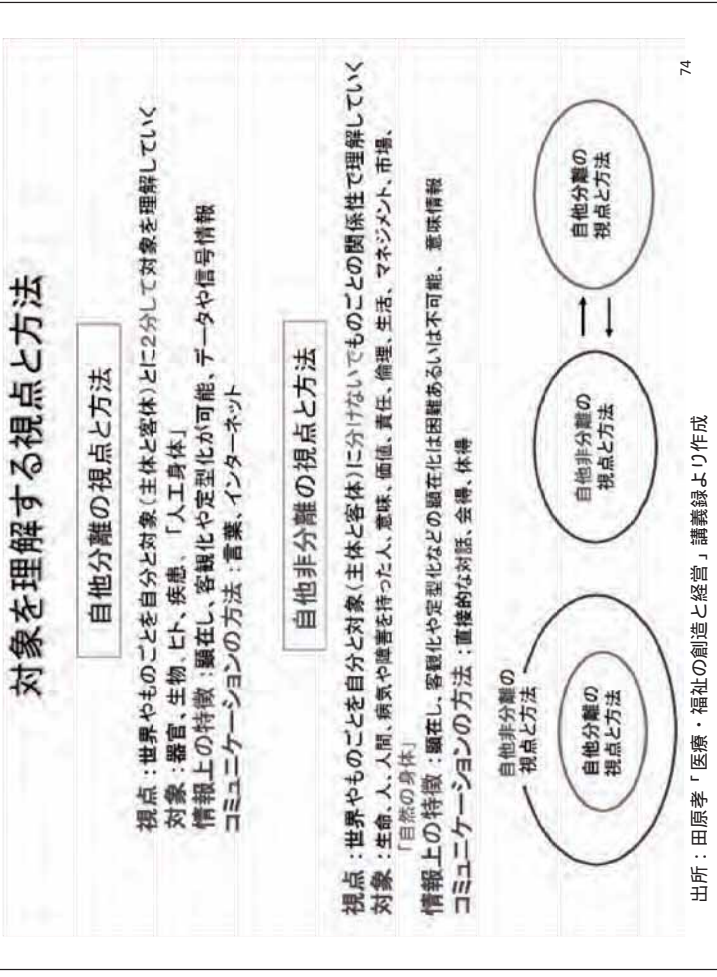 対象を理解する視点と方法
自他分離の視点と方法
視点：世界やものごとを自分と対象(主体と客体)とに2分して対象を理解していく
対象：器官、生物、ヒト、疾患、「人工身体」
情報上の特徴：顕在し、客観化や定型化が可能、データや信号情報
コミュニケーションの方法：言葉、インターネット
自他非分離の視点と方法
視点：世界やものごとを自分と対象(主体と客体)に分けないでものごとの関係性で理解していく
対象：生命、人、人間、病気や障害を持った人、意味、価値、責任、倫理、生活、マネジメント、市場、
「自然の身体」
情報上の特徴：顕在し、客観化や定型化などの顕在化は困難あるいは不可能、意味情報
コミュニケーションの方法：直接的な対話、会得、体得
自他非分離の
視点と方法
自他分離の
視点と方法
自他非分離の
視点と方法
自他分離の
視点と方法
74
出所：田原孝「医療・福祉の創造と経営」講義録より作成